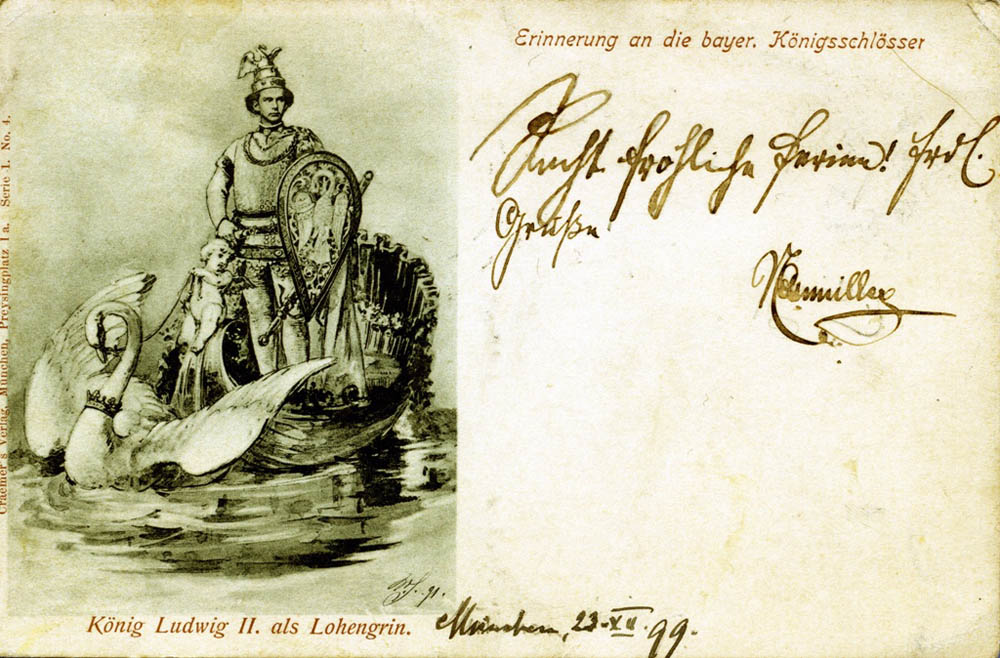 Erinnerung an die bayer. Königsschlösser
Recht fröhliche Ferien! Frdl.
Grüße
König Ludwig II. als Lohengrin.
München, 23. XII. 99.
Craemer's Verlag, München, Preysingplatz 1a. Serie I. No. 4.
91.